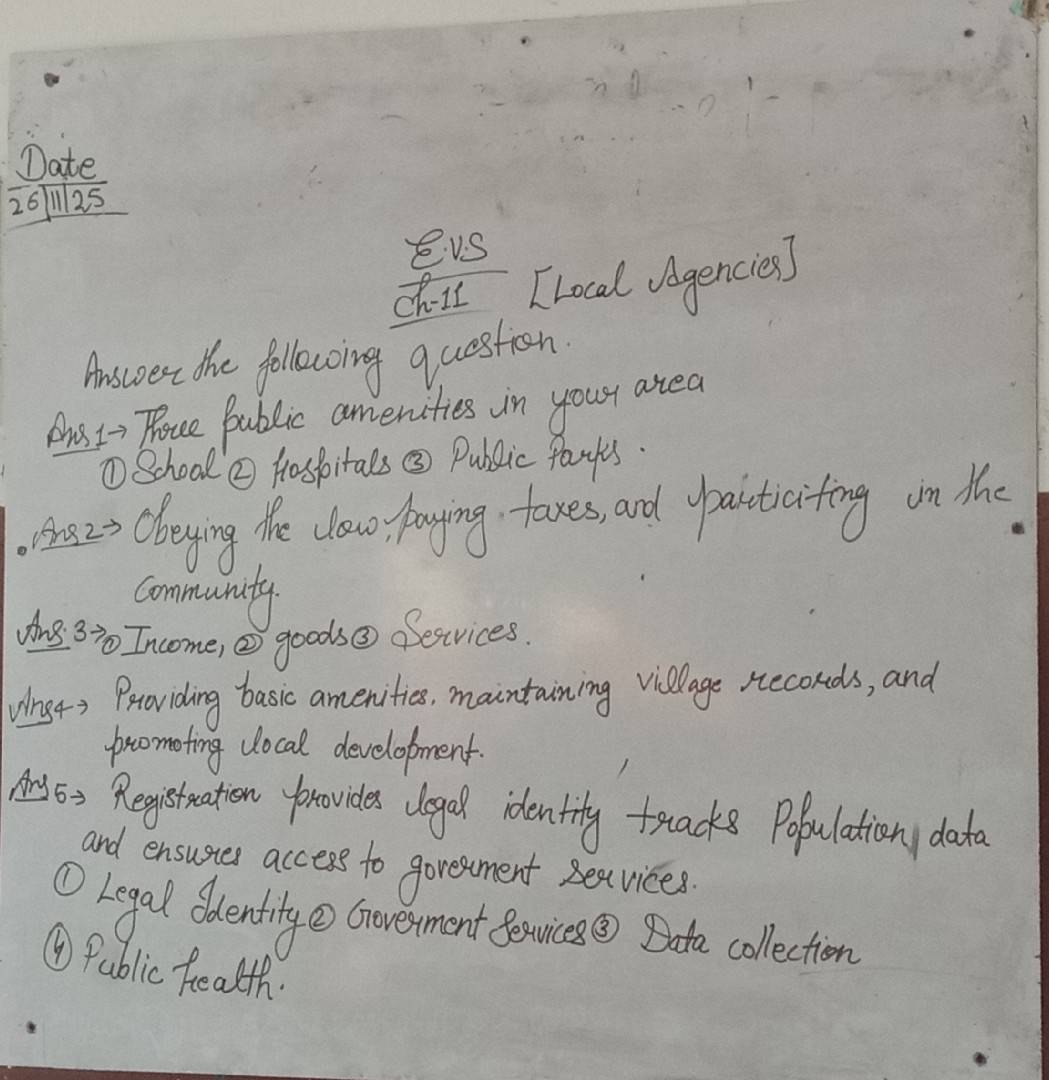 Date
26/11/25
E.V.S
Ch-11 [Local Agencies]
Answer the following question.
Ans 1→ Three public amenities in your area
① School ② Hospitals ③ Public Parks.
Ans 2→ Obeying the law, paying taxes, and particiting in the
Community.
Ans. 3→ ① Income, ② goods ③ Services.
Ans 4→ Providing basic amenities. maintaining village records, and
promoting local development.
Ans 5→ Registration provides legal identity tracks Population, data
and ensures access to goverment services.
① Legal Identity ② Goverment Services ③ Data collection
④ Public health.